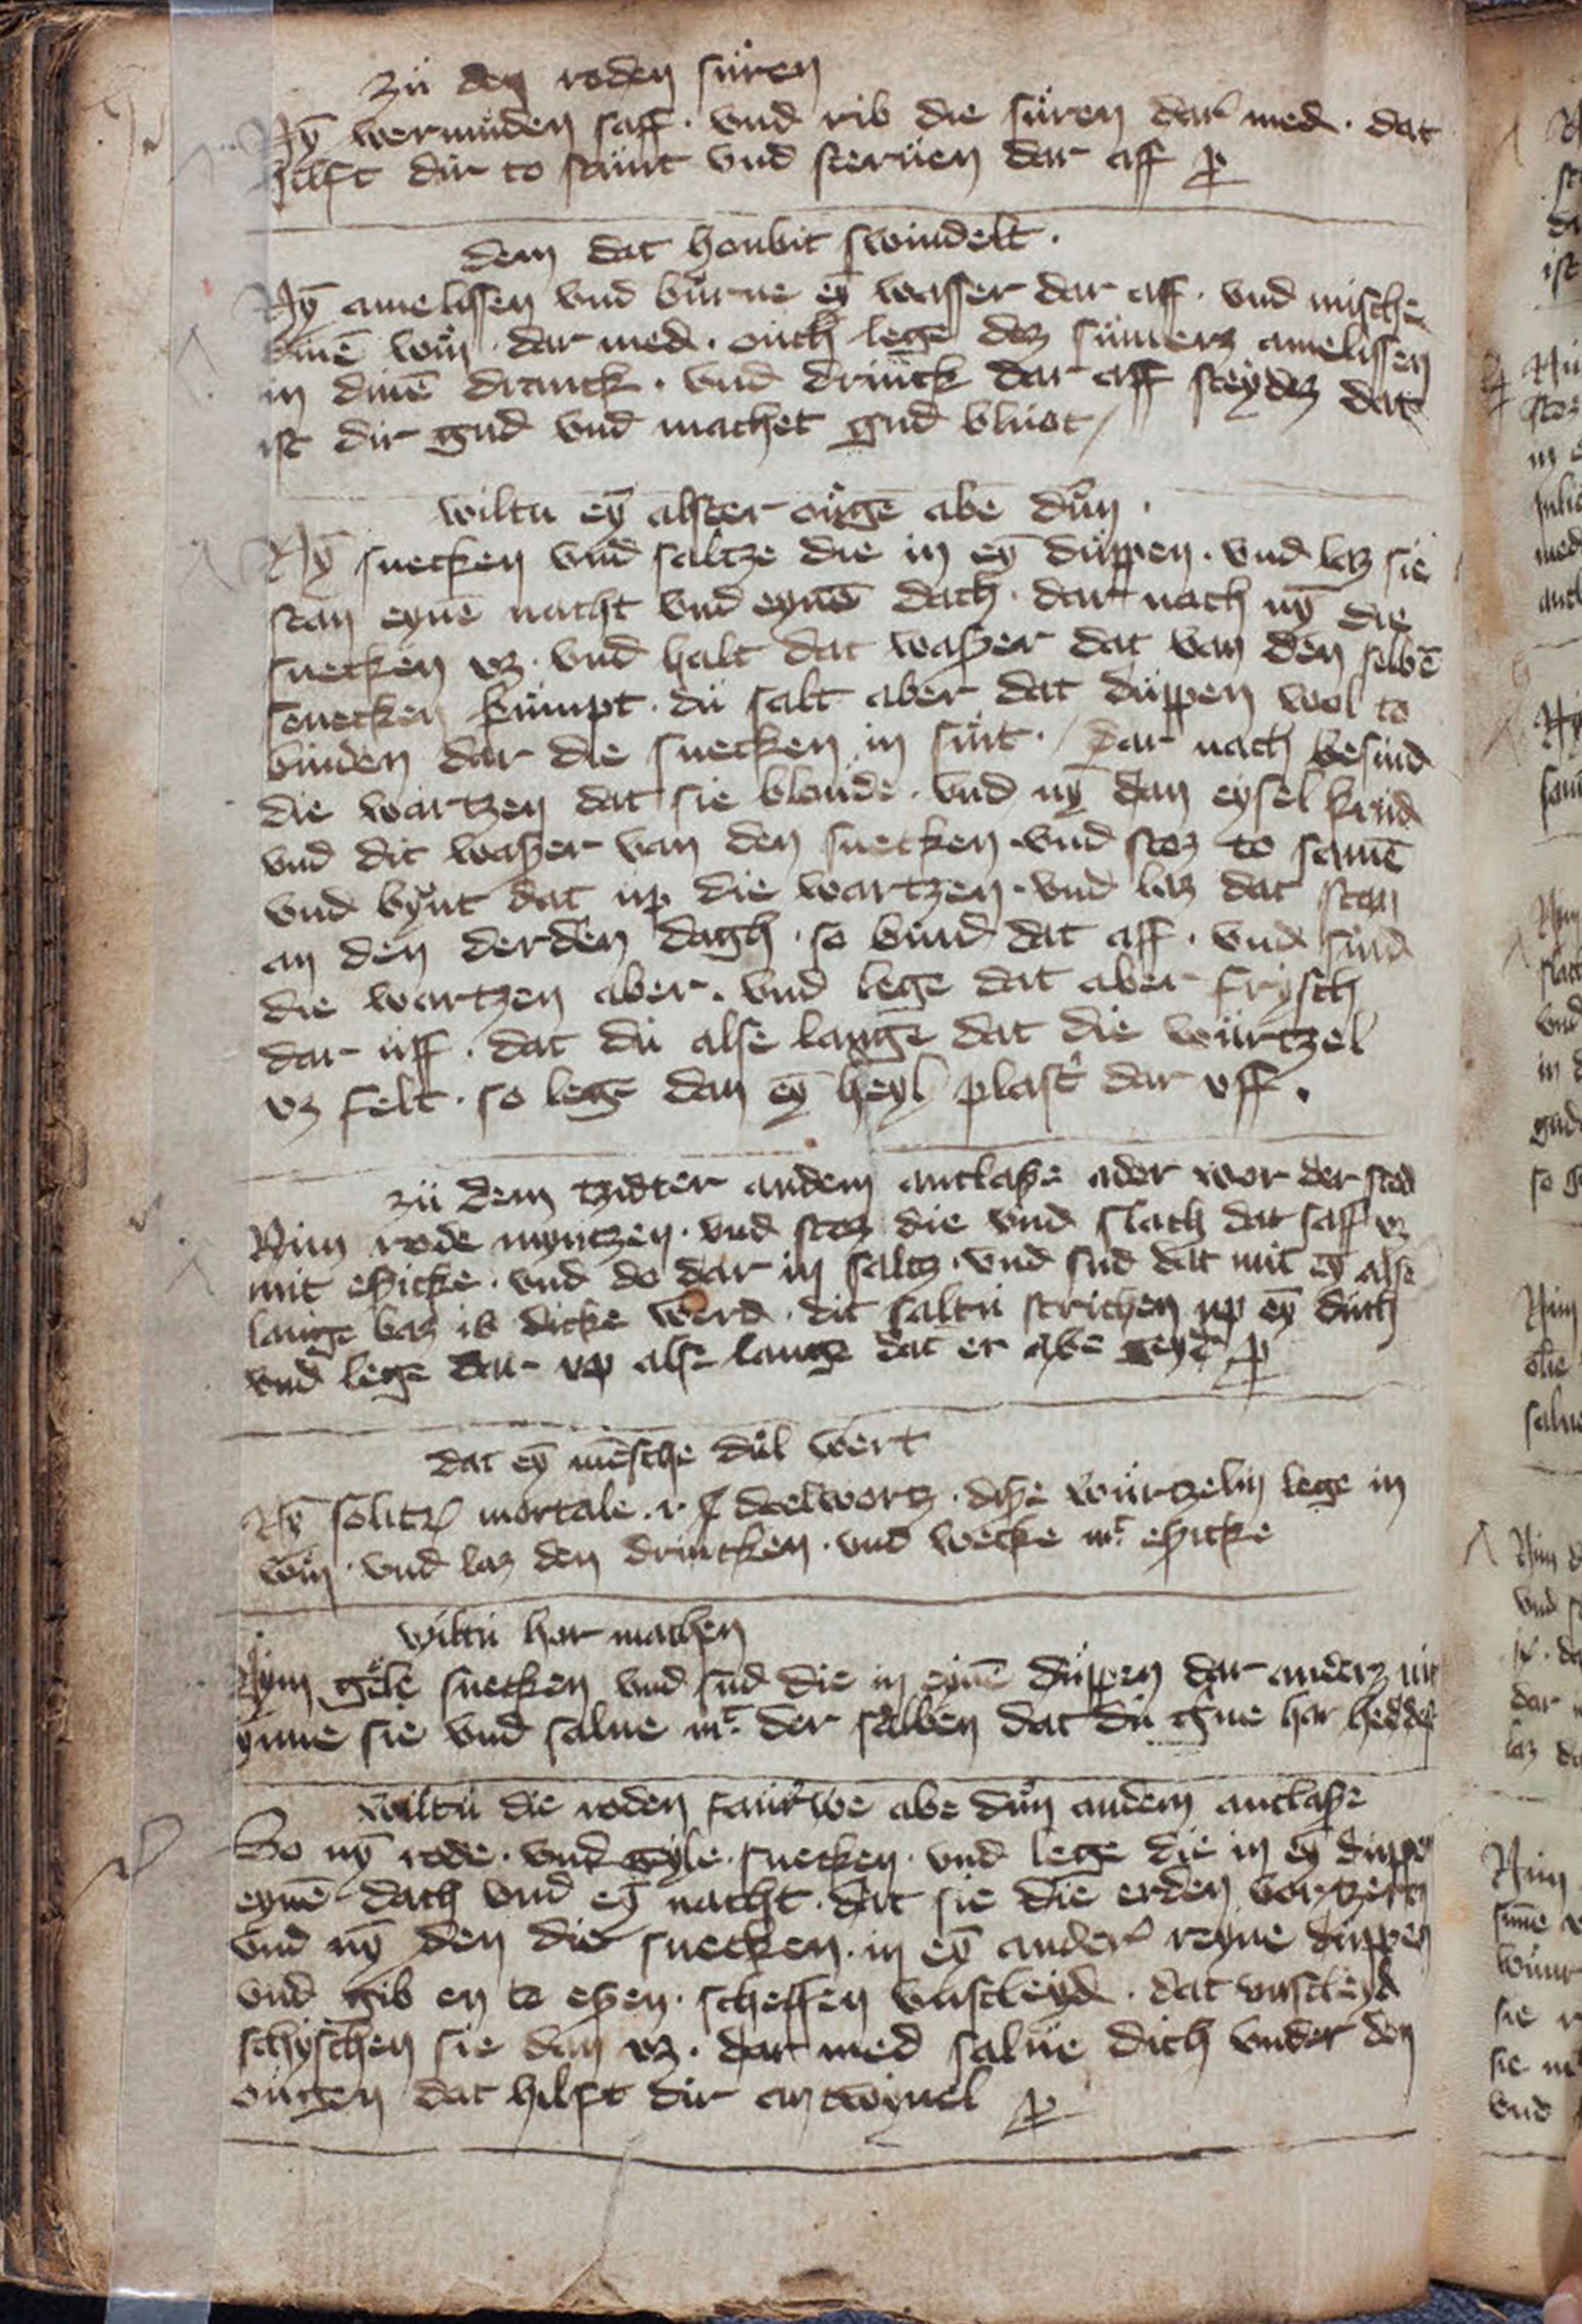 zü den roden süren
Ny̅ wermüden saff · vnd rib die süren dar med · dat
hilft dir to hant vnd steruen dar aff
dem dat houbit swindelt ·
Ny̅ amelissen vnd bürne ey̅ wasser dar aff · vnd mische
dine̅ win dar med · ouch lege dez sümerz amelissen
in dine̅ dranck · vnd drinck dar aff steydez dat
ist dir gud vnd machet gud bluot /
wiltu ey̅ alster ouge̅ abe dün ·
Ny̅ snecken vnd saltze die in ey̅ düppen · vnd laz sie
stan eyne̅ nacht vnd eyne̅ dach · dar nach ny̅ die
snecken vz · vnd halt dat waßer dat van den selbe̅
snecken kümpt · dü salt aber dat düppen wol to
binden dar die snecken in sint · / dar nach besnid
die wartzen dat sie blonde · vnd ny̅ dan eysel krud
vnd dit waßer van den snecken · vnd stoz to same̅
vnd bynt dat up die wartzen · vnd laz dat stan
an den derden dagh · so bind dat aff · vnd snid
die wartzen aber · vnd lege dat aber frysch
dar uff · dat du alse lange dat die würtzel
vz felt · so lege dan ey̅ heyl plast' dar vff ·
zü dem tzidter andem antlaße ader wor der sted
Nim rode myntzen · vnd stoz die vnd slach dat saff vz
mit eßicke · vnd do dar in saltz · vnd sud dat mit ey̅ alse
lange baz is dicke werd · dit saltu strichen up ey̅ düch
vnd lege dar vp alse lange dat er abe geyt
dat ey̅ me̅sche dül wert
Ny̅ solatr' mortale · doelwortz · dyße würtzelin lege in
win · vnd laz den drincken · vnd wecke mt eßicke
wiltu har machen
Nym gele snecken vnd sud die in eyne̅ düppen dar anderz nit
ynne sie vnd salue mt der salben dat du gene har heddest
wiltu die roden farwe abe dün andem antlaße
So ny̅ rode · vnd gele · snecken · vnd lege die in ey̅ düppe̅
eyne̅ dach vnd ey̅ nacht · dat sie die erden vortzern
vnd ny̅ den die snecken · in ey̅ ander reyne düppen
vnd gib en to eßen · scheffen vnsleyd · dat vnsleyd
schyschen sie dan vz · dar med salue dich vnder den
ougen dat hilft dir an twyuel